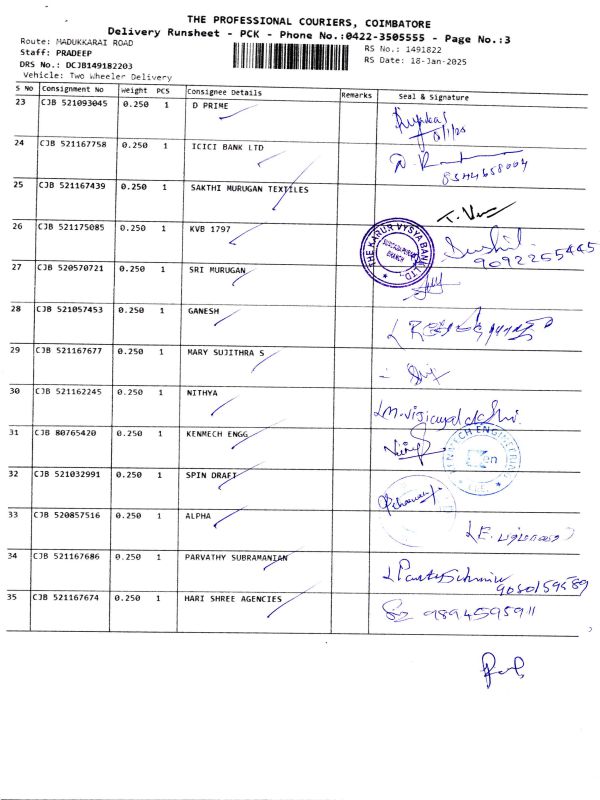 THE PROFESSIONAL COURIERS, COIMBATORE
Delivery Runsheet - PCK - Phone No.:0422-3505555 - Page No.:3
Route: MADUKKARAI ROAD
RS No.: 1491822
Staff: PRADEEP
RS Date: 18-Jan-2025
DRS No.: DCJB149182203
Vehicle: Two Wheeler Delivery
S No Consignment No Weight PCS Consignee Details Remarks Seal & Signature
23 CJB 521093045 0.250 1 D PRIME
24 CJB 521167758 0.250 1 ICICI BANK LTD
8544658004
25 CJB 521167439 0.250 1 SAKTHI MURUGAN TEXTILES
26 CJB 521175085 0.250 1 KVB 1797
THE KARUR VYSYA BANK LTD.
BRANCH
Sushil.
9092255445
27 CJB 520570721 0.250 1 SRI MURUGAN
28 CJB 521057453 0.250 1 GANESH
29 CJB 521167677 0.250 1 MARY SUJITHRA S
30 CJB 521162245 0.250 1 NITHYA
M. Vijayalakshi.
31 CJB 80765420 0.250 1 KENMECH ENGG
KENMECH ENGINEERING
Ken
32 CJB 521032991 0.250 1 SPIN DRAFT
33 CJB 520857516 0.250 1 ALPHA
34 CJB 521167686 0.250 1 PARVATHY SUBRAMANIAN
9080159589
35 CJB 521167674 0.250 1 HARI SHREE AGENCIES
9894595911